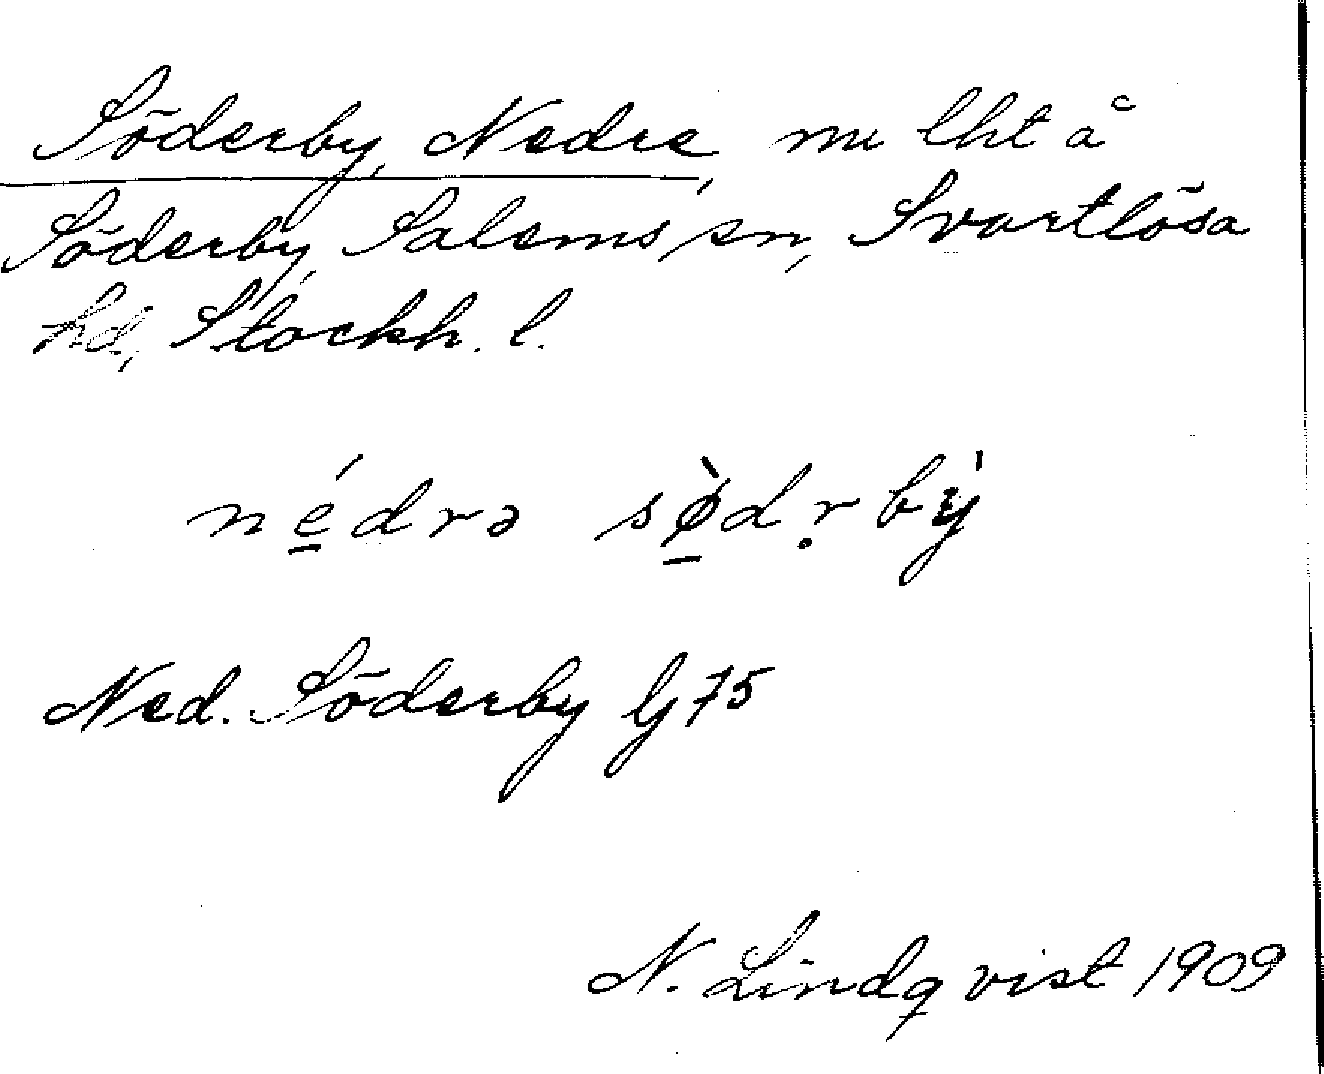 Söderby, Nedre, nu lht å
Söderby, Salems sn, Svartlösa
hd, Stockh. l.
né̱drə sø̱̀dṛbỳ
Ned. Söderby Gj 75
N. Lindqvist 1909